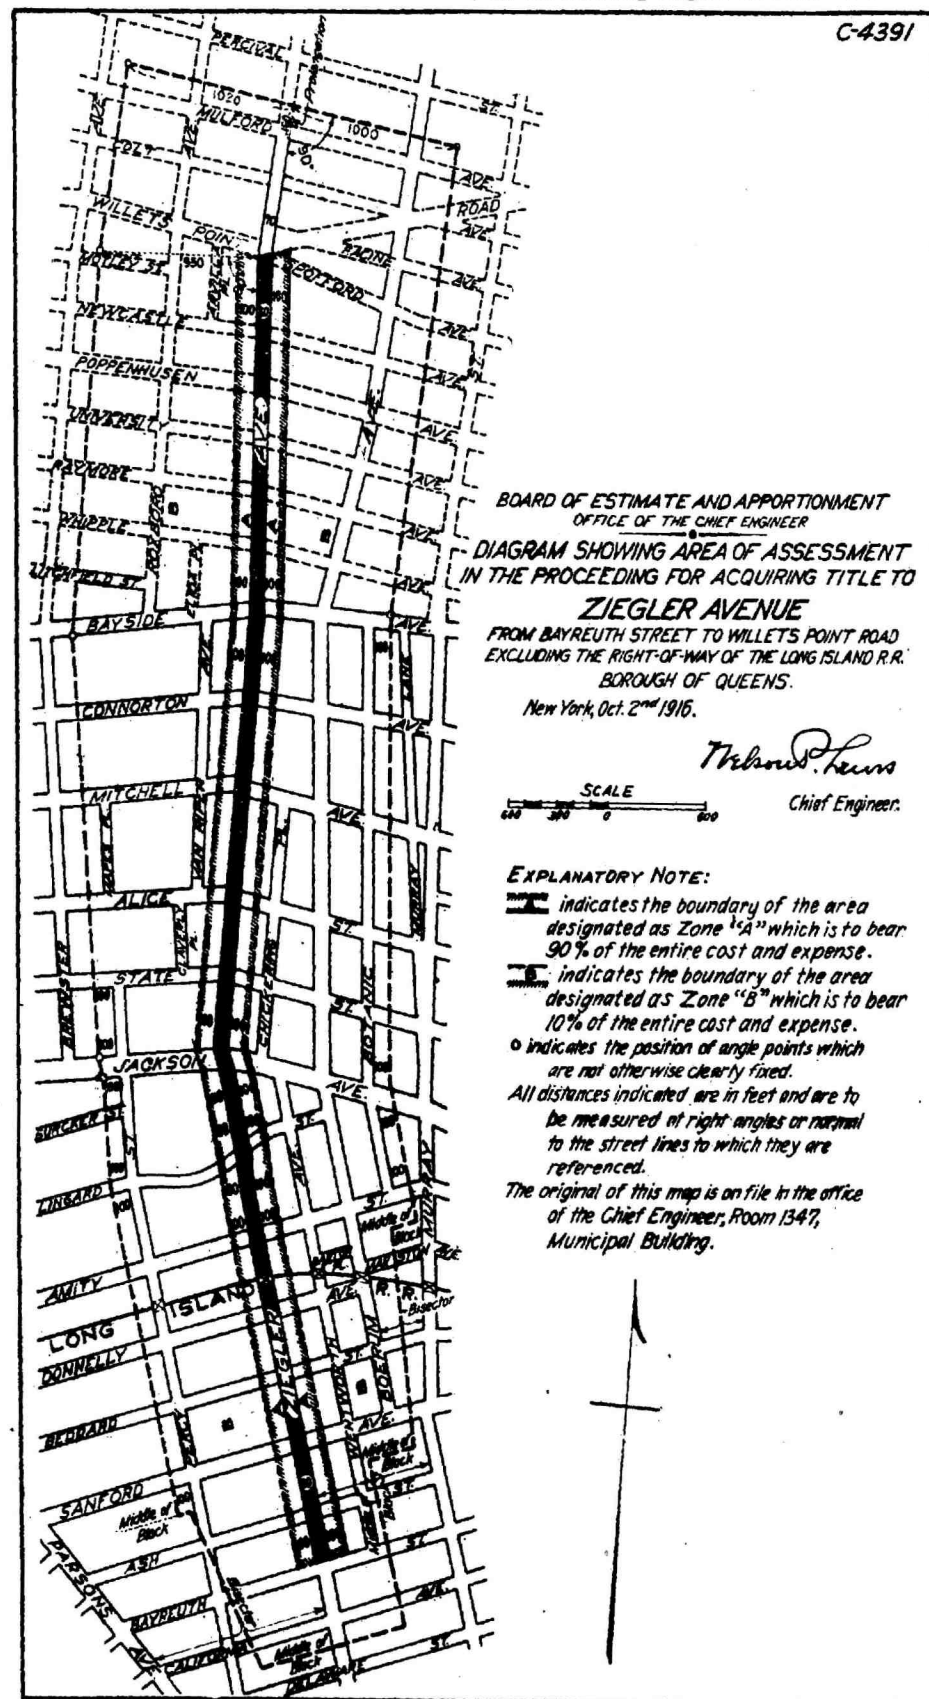 C-4391
PERCIVAL
ST.
Prolongation
AVE.
AVE.
1020
1000
MULFORD
AVE.
90°
ROAD
AVE.
WILLETS
POIN
70
RACINE
AVE.
MOTLEY ST.
550
PL.
BOTFORD
AVE.
NEWCASTLE
AVE.
ST.
POPPENHUSEN
AVE.
UNIVERSITY
AVE.
AVE.
AVE.
WHIPPLE
AVE.
ROXBORO
B
A
A
B
LITCHFIELD ST.
EZRA PL.
AVE.
BAYSIDE
AVE.
AVE.
LANE
CONNORTON
AVE.
MITCHELL
AVE.
MAPLE PL.
VAN RIPER
PL.
MURRAY
ALICE
ST.
CLAVERLY
PL.
CHICKERING
STATE
ST.
BREWSTER
BOTANIC
JACKSON
AVE.
BURCKER ST.
ST.
ST.
AVE.
LINGARD
ST.
MURRAY
Middle of
Block
AMITY
MARSTON
AVE.
AVE.
LONG
ISLAND
R. R.
Bisector
DONNELLY
ZIEGLER
WENTWORTH
BOERUM
ST.
BEDDARD
PERCY
B
A
A
B
AVE.
Middle of
Block
SANFORD
ST.
Middle of
Block
ASH
ST.
PARSONS
AVE.
BAYREUTH
AVE.
Bisector
CALIFORNIA
ST.
Middle of
Block
DELAWARE
BOARD OF ESTIMATE AND APPORTIONMENT
OFFICE OF THE CHIEF ENGINEER
DIAGRAM SHOWING AREA OF ASSESSMENT
IN THE PROCEEDING FOR ACQUIRING TITLE TO
ZIEGLER AVENUE
FROM BAYREUTH STREET TO WILLETS POINT ROAD
EXCLUDING THE RIGHT-OF-WAY OF THE LONG ISLAND R.R.
BOROUGH OF QUEENS.
New York, Oct. 2nd 1916.
Nelson P. Lewis
Chief Engineer.
SCALE
600 300 0 600
EXPLANATORY NOTE:
A indicates the boundary of the area
designated as Zone "A" which is to bear
90% of the entire cost and expense.
B indicates the boundary of the area
designated as Zone "B" which is to bear
10% of the entire cost and expense.
o indicates the position of angle points which
are not otherwise clearly fixed.
All distances indicated are in feet and are to
be measured at right angles or normal
to the street lines to which they are
referenced.
The original of this map is on file in the office
of the Chief Engineer, Room 1347,
Municipal Building.